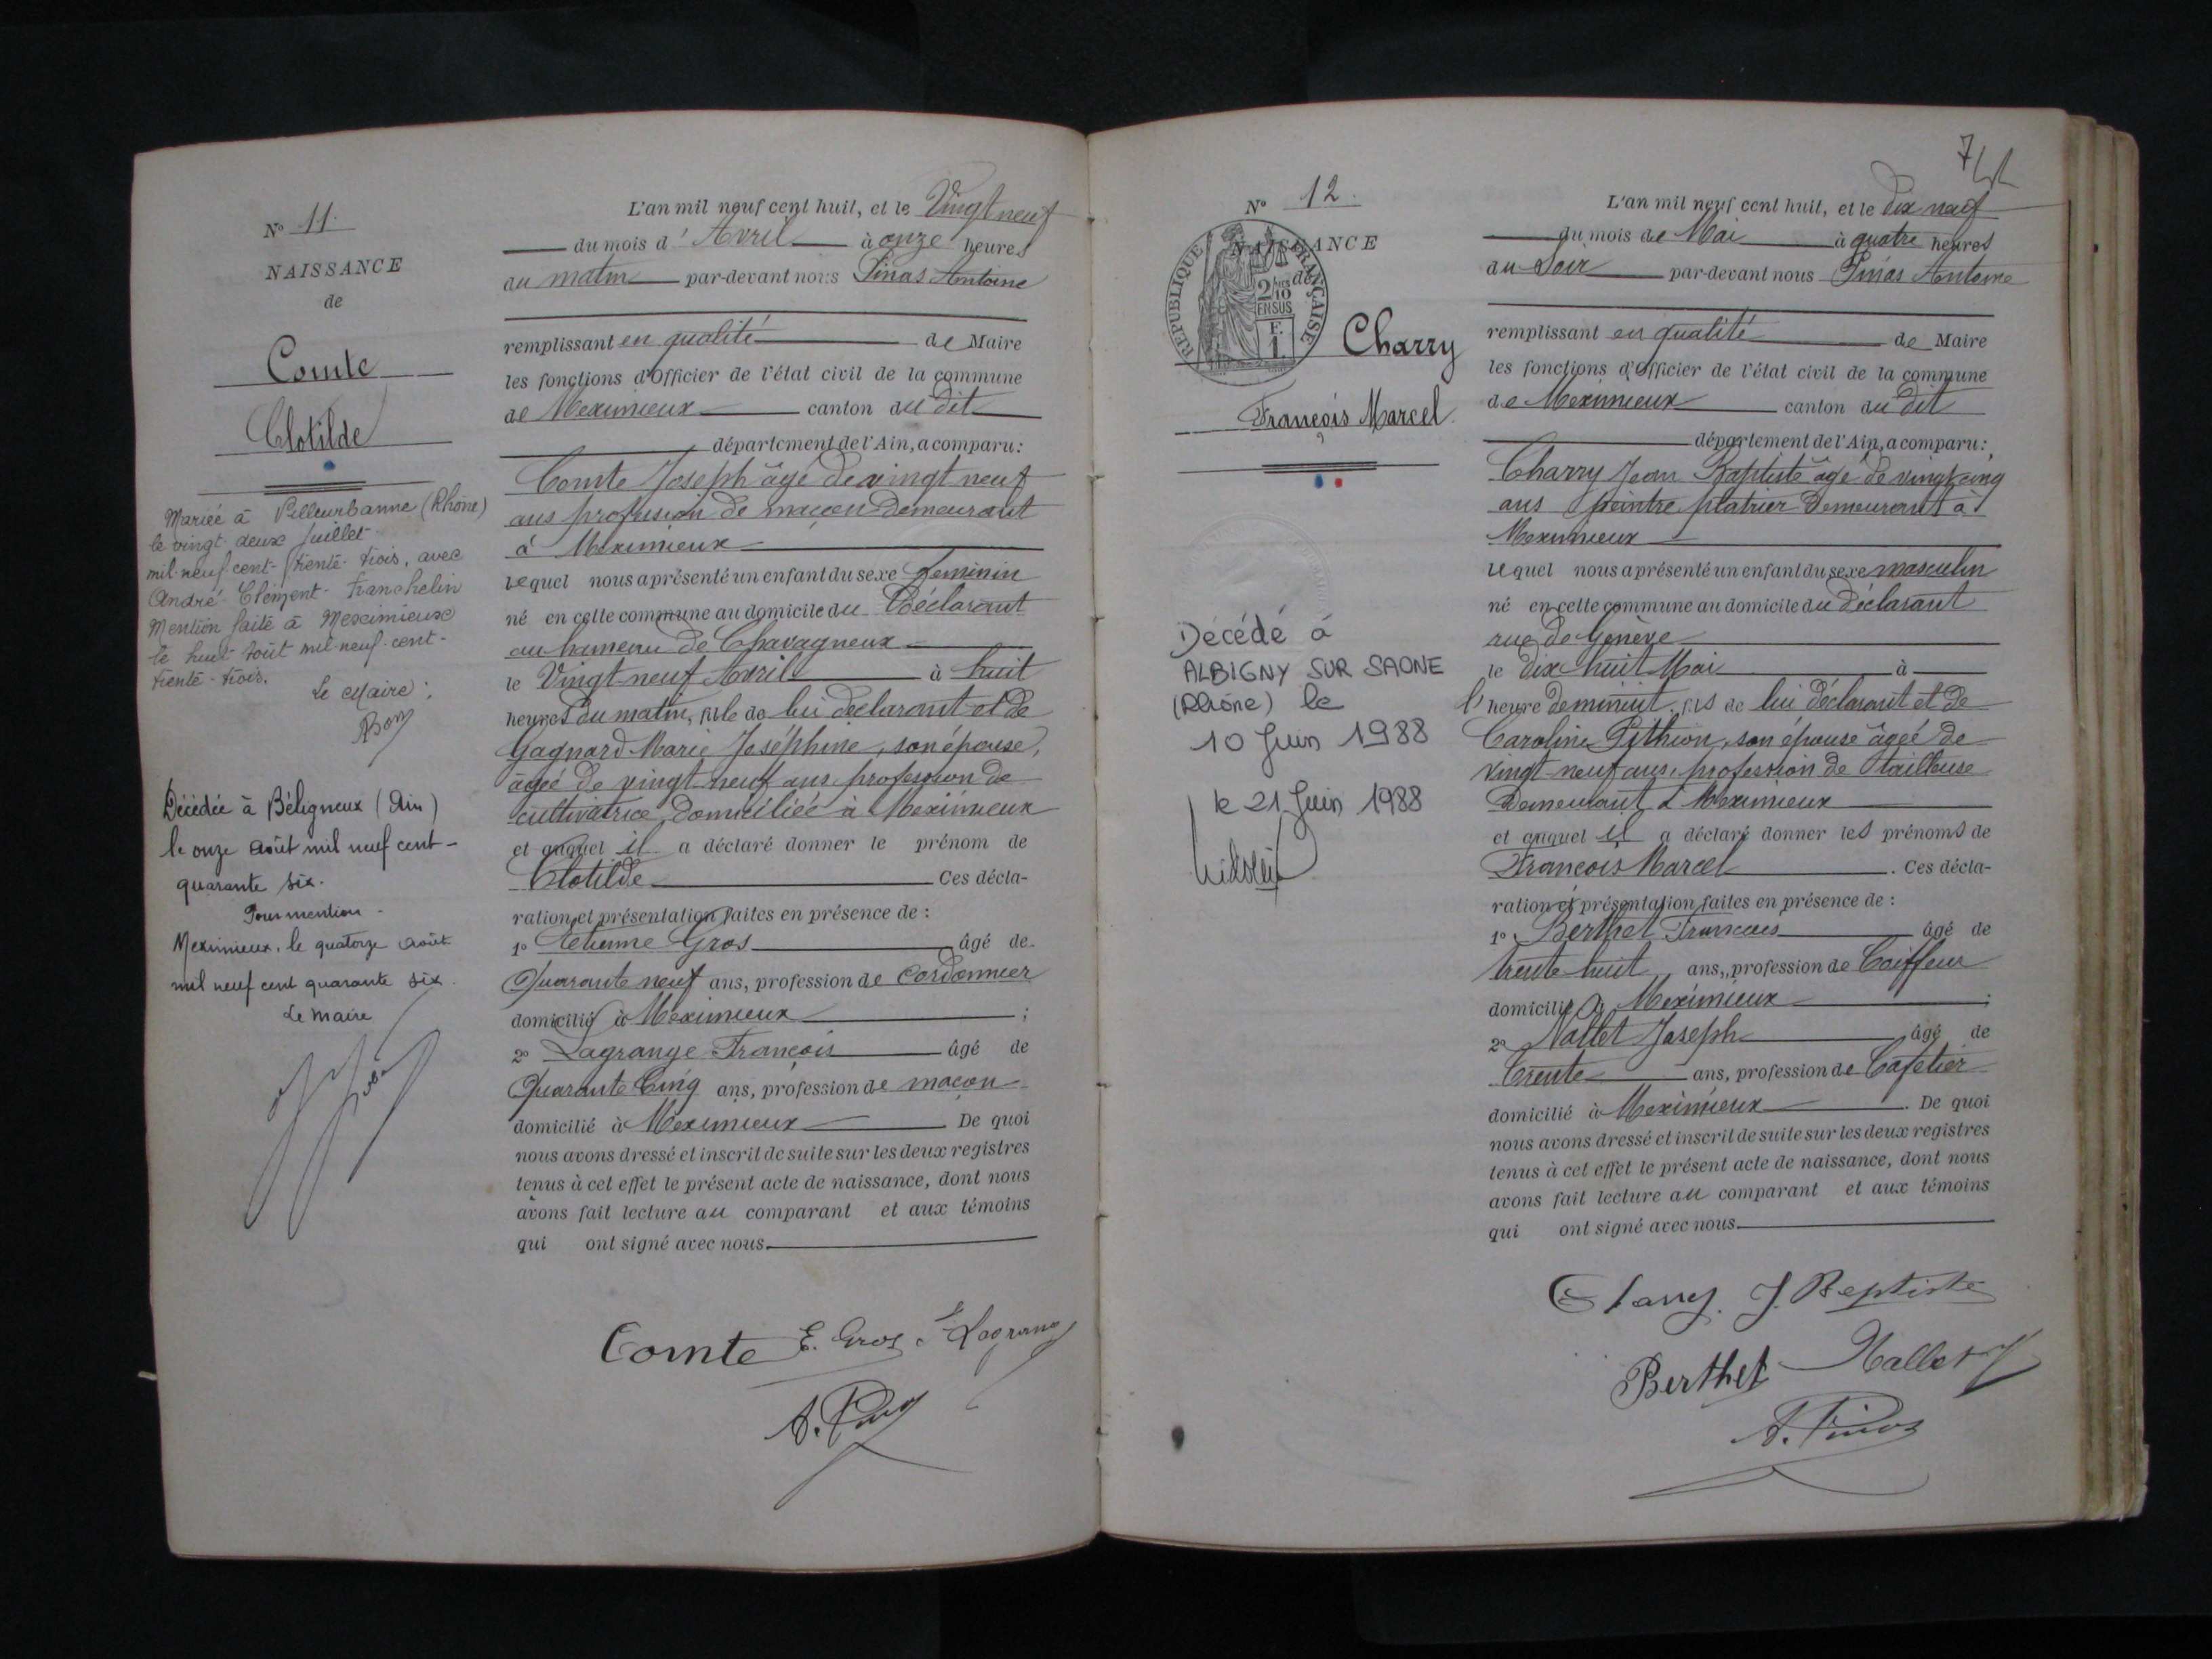 N° 11.
NAISSANCE
de
Comte
Clotilde
Mariée à Villeurbanne (Rhône)
le vingt-deux Juillet
mil-neuf-cent-trente-trois, avec
André-Clément-Franchelin
Mention faite à Meximieux
le huit Août mil-neuf-cent-
trente-trois.
Le Maire :
Décédée à Béligneux (Ain)
le onze Août mil neuf cent-
quarante six.
Pour mention.
Meximieux, le quatorze août
mil neuf cent quarante six.
Le Maire
L'an mil neuf cent huit, et le Vingt neuf
du mois d'Avril à onze heures
du matin par-devant nous Pinas Antoine
remplissant en qualité de Maire
les fonctions d'Officier de l'état civil de la commune
de Meximieux canton du dit
département de l'Ain, a comparu :
Comte Joseph âgé de vingt neuf
ans profession de maçon demeurant
à Meximieux
lequel nous a présenté un enfant du sexe feminin
né en cette commune au domicile du Déclarant
au hameau de Chavagneux
le Vingt-neuf Avril à huit
heures du matin, fille de lui déclarant et de
Gagnard Marie Joséphine, son épouse,
âgée de vingt-neuf ans, profession de
cultivatrice domiciliée à Meximieux
et auquel il a déclaré donner le prénom de
Clotilde Ces décla-
ration et présentation faites en présence de :
1° Etienne Gros âgé de
Quarante neuf ans, profession de Cordonnier
domicilié à Meximieux ;
2° Lagrange François âgé de
Quarante Cinq ans, profession de maçon
domicilié à Meximieux. De quoi
nous avons dressé et inscrit de suite sur les deux registres
tenus à cet effet le présent acte de naissance, dont nous
avons fait lecture au comparant et aux témoins
qui ont signé avec nous.
Comte E. Gros F. Lagrange
A. Pinas
7
N° 12.
NAISSANCE
de
RÉPUBLIQUE FRANÇAISE
2/10 EN SUS
F. 1
Charry
François Marcel
Décédé à
ALBIGNY SUR SAONE
(Rhône) le
10 Juin 1988
le 21 Juin 1988
L'an mil neuf cent huit, et le dix neuf
du mois de Mai à quatre heures
du Soir par-devant nous Pinas Antoine
remplissant en qualité de Maire
les fonctions d'Officier de l'état civil de la commune
de Meximieux canton du dit
département de l'Ain, a comparu :
Charry Jean Baptiste âgé de vingt cinq
ans peintre plâtrier demeurant à
Meximieux
lequel nous a présenté un enfant du sexe masculin
né en cette commune au domicile du déclarant
rue de Genève
le dix huit Mai à
l'heure de minuit, fils de lui déclarant et de
Caroline Pithion, son épouse âgée de
vingt-neuf ans, profession de tailleuse
Demeurant à Meximieux
et auquel il a déclaré donner les prénoms de
François Marcel. Ces décla-
ration et présentation faites en présence de :
1° Berthet François âgé de
trente huit ans, profession de Coiffeur
domicilié à Meximieux ;
2° Nallet Joseph âgé de
Trente ans, profession de Cafetier
domicilié à Meximieux. De quoi
nous avons dressé et inscrit de suite sur les deux registres
tenus à cet effet le présent acte de naissance, dont nous
avons fait lecture au comparant et aux témoins
qui ont signé avec nous.
Charry. J. Baptiste
Berthet Nallet J
A. Pinas